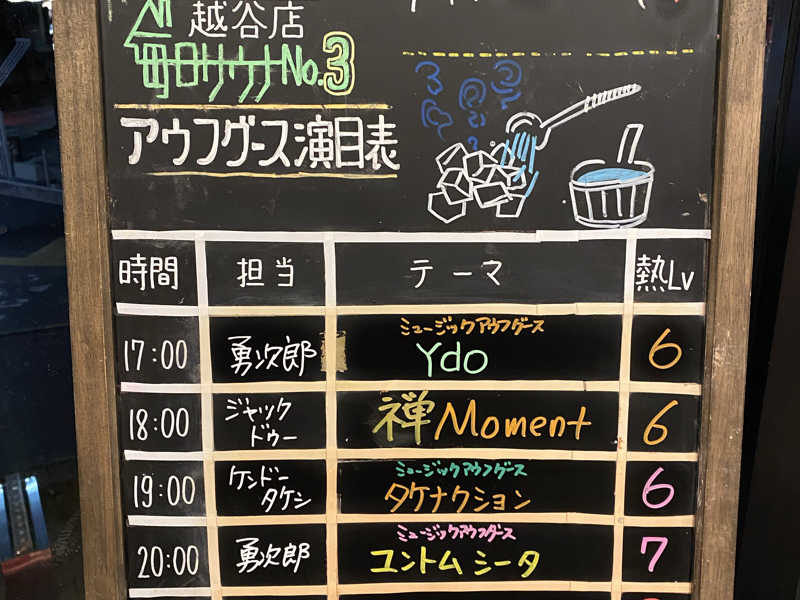 越谷店
毎日サウナNo.3
アウフグース演目表
時間 担当 テーマ 熱Lv
17:00 勇次郎 ミュージックアウフグース Ydo 6
18:00 ジャックドゥー 禅Moment 6
19:00 ケンドータケシ ミュージックアウフグース タケナクション 6
20:00 勇次郎 ミュージックアウフグース ユントムシータ 7